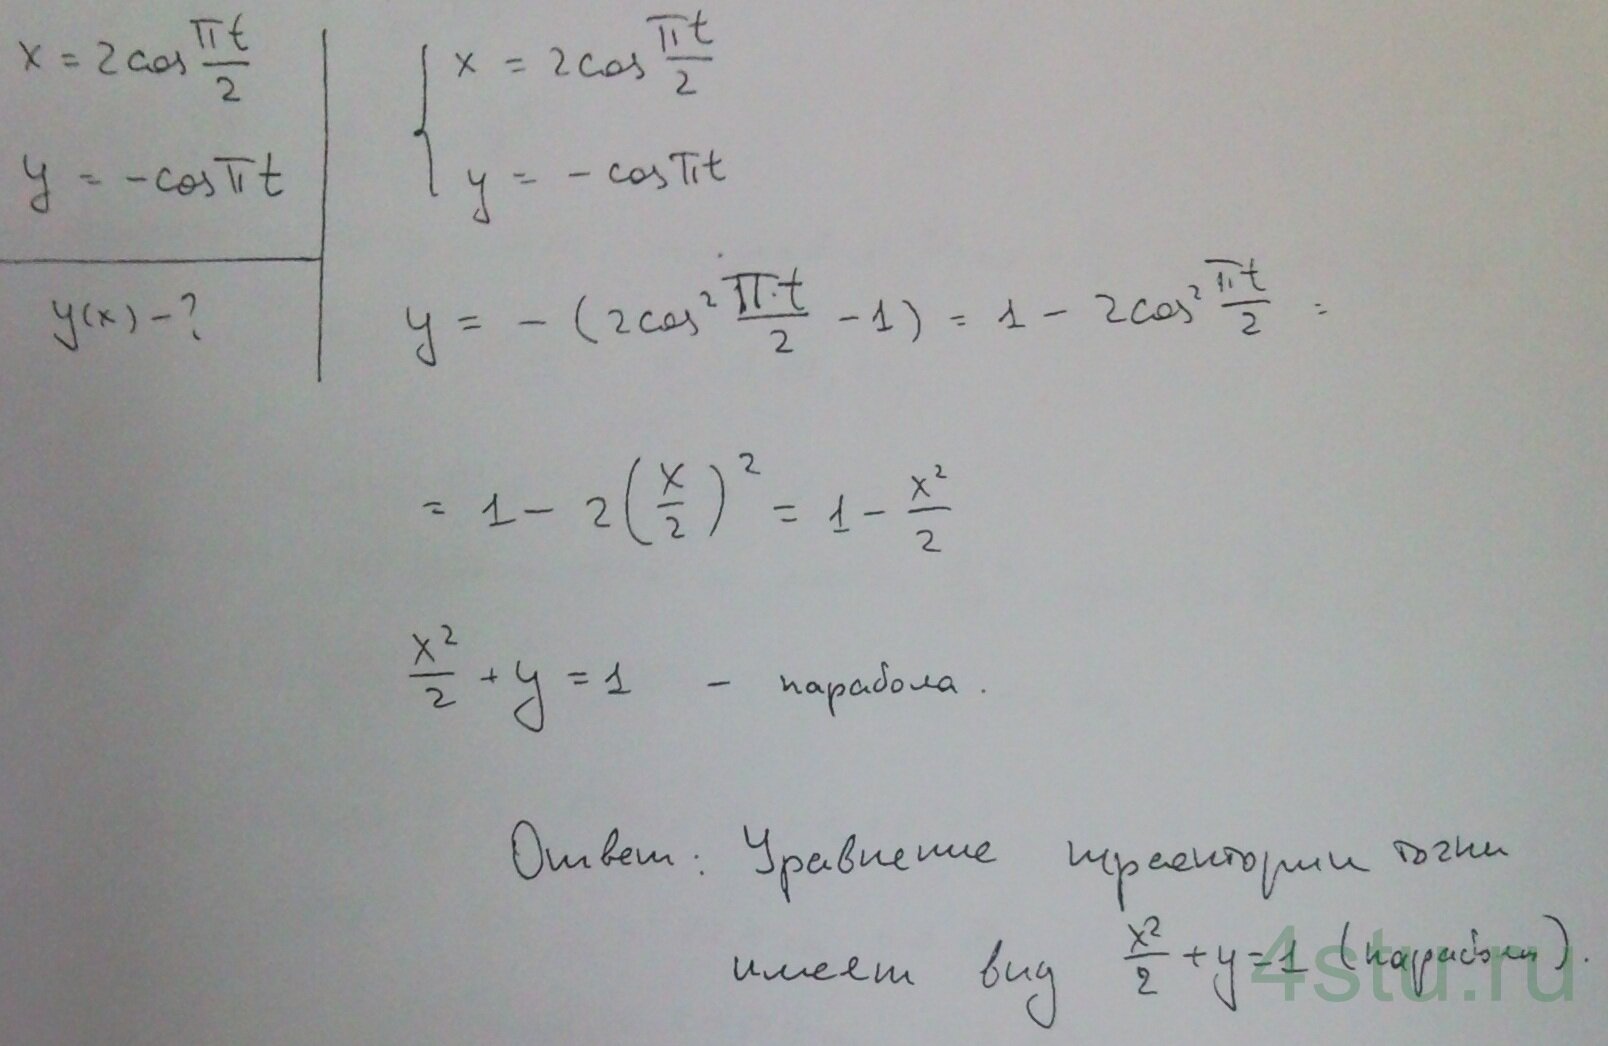 x = 2cos πt/2
y = -cosπt
y(x) - ?
x = 2cos πt/2
y = - cosπt
y = - (2cos² π·t/2 - 1) = 1 - 2cos² πt/2 =
= 1 - 2(x/2)² = 1 - x²/2
x²/2 + y = 1 - парабола.
Ответ: Уравнение траектории точки
имеет вид x²/2 + y = 1 (парабола).
4stu.ru